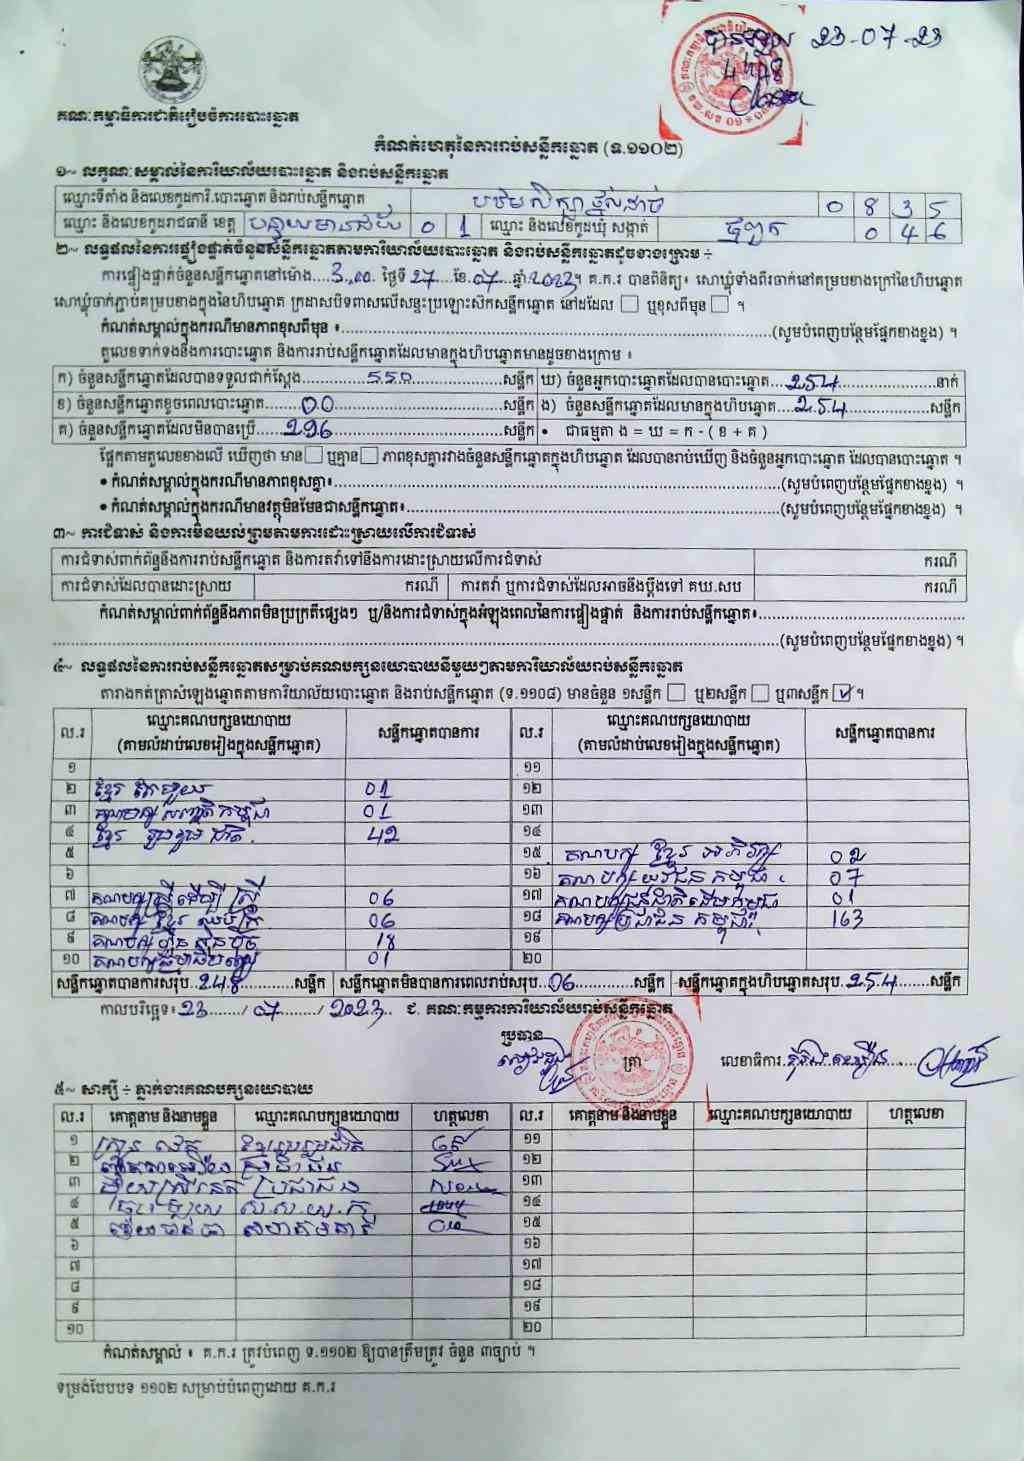 23-07-23
គណៈកម្មាធិការជាតិរៀបចំការបោះឆ្នោត
កំណត់ហេតុនៃការរាប់សន្លឹកឆ្នោត (ទ.១១០២)
១~ លក្ខណៈសម្គាល់នៃការិយាល័យបោះឆ្នោត និងរាប់សន្លឹកឆ្នោត
ឈ្មោះទីតាំង និងលេខកូដការិ.បោះឆ្នោត និងរាប់សន្លឹកឆ្នោត បឋមសិក្សាថ្នល់ដាច់ 0 8 3 5
ឈ្មោះ និងលេខកូដរាជធានី ខេត្ត បន្ទាយមានជ័យ 0 1 ឈ្មោះ និងលេខកូដឃុំ សង្កាត់ 0 4 6
២~ លទ្ធផលនៃការផ្ទៀងផ្ទាត់ចំនួនសន្លឹកឆ្នោតតាមការិយាល័យបោះឆ្នោត និងរាប់សន្លឹកឆ្នោតដូចខាងក្រោម ÷
ការផ្ទៀងផ្ទាត់ចំនួនសន្លឹកឆ្នោតនៅម៉ោង....3,00. ថ្ងៃទី 27 ខែ.07 ឆ្នាំ.2023។ គ.ក.រ បានពិនិត្យ៖ សោឃ្លុំទាំងពីរចាក់នៅគម្របខាងក្រៅនៃហិបឆ្នោត
សោឃ្លុំចាក់ភ្ជាប់គម្របខាងក្នុងនៃហិបឆ្នោត ក្រដាសបិទពាសលើសន្ទះប្រឡោះស៊កសន្លឹកឆ្នោត នៅដដែល ☐ ឬខុសពីមុន ☐ ។
កំណត់សម្គាល់ក្នុងករណីមានភាពខុសពីមុន ៖ (សូមបំពេញបន្ថែមផ្នែកខាងខ្នង) ។
តួលេខទាក់ទងនឹងការបោះឆ្នោត និងការរាប់សន្លឹកឆ្នោតដែលមានក្នុងហិបឆ្នោតមានដូចខាងក្រោម ៖
ក) ចំនួនសន្លឹកឆ្នោតដែលបានទទួលជាក់ស្តែង 550 សន្លឹក ឃ) ចំនួនអ្នកបោះឆ្នោតដែលបានបោះឆ្នោត 254 នាក់
ខ) ចំនួនសន្លឹកឆ្នោតខូចពេលបោះឆ្នោត 00 សន្លឹក ង) ចំនួនសន្លឹកឆ្នោតដែលមានក្នុងហិបឆ្នោត 254 សន្លឹក
គ) ចំនួនសន្លឹកឆ្នោតដែលមិនបានប្រើ 296 សន្លឹក • ជាធម្មតា ង = ឃ = ក - ( ខ + គ )
ផ្អែកតាមតួលេខខាងលើ ឃើញថា មាន ☐ ឬគ្មាន ☐ ភាពខុសគ្នារវាងចំនួនសន្លឹកឆ្នោតក្នុងហិបឆ្នោត ដែលបានរាប់ឃើញ និងចំនួនអ្នកបោះឆ្នោត ដែលបានបោះឆ្នោត ។
• កំណត់សម្គាល់ក្នុងករណីមានភាពខុសគ្នា៖ (សូមបំពេញបន្ថែមផ្នែកខាងខ្នង) ។
• កំណត់សម្គាល់ក្នុងករណីមានវត្ថុមិនមែនជាសន្លឹកឆ្នោត៖ (សូមបំពេញបន្ថែមផ្នែកខាងខ្នង) ។
៣~ ការជំទាស់ និងការមិនយល់ព្រមតាមការដោះស្រាយលើការជំទាស់
ការជំទាស់ពាក់ព័ន្ធនឹងការរាប់សន្លឹកឆ្នោត និងការតវ៉ាទៅនឹងការដោះស្រាយលើការជំទាស់ ករណី
ការជំទាស់ដែលបានដោះស្រាយ ករណី ការតវ៉ា ឬការជំទាស់ដែលអាចនឹងប្តឹងទៅ គឃ.សប ករណី
កំណត់សម្គាល់ពាក់ព័ន្ធនឹងភាពមិនប្រក្រតីផ្សេងៗ ឬ/និងការជំទាស់ក្នុងអំឡុងពេលនៃការផ្ទៀងផ្ទាត់ និងការរាប់សន្លឹកឆ្នោត៖
(សូមបំពេញបន្ថែមផ្នែកខាងខ្នង) ។
៤~ លទ្ធផលនៃការរាប់សន្លឹកឆ្នោតសម្រាប់គណបក្សនយោបាយនីមួយៗតាមការិយាល័យរាប់សន្លឹកឆ្នោត
តារាងកត់ត្រាសំឡេងឆ្នោតតាមការិយាល័យបោះឆ្នោត និងរាប់សន្លឹកឆ្នោត (ទ.១១០៨) មានចំនួន ១សន្លឹក ☐ ឬ២សន្លឹក ☐ ឬ៣សន្លឹក ☑ ។
ល.រ ឈ្មោះគណបក្សនយោបាយ (តាមលំដាប់លេខរៀងក្នុងសន្លឹកឆ្នោត) សន្លឹកឆ្នោតបានការ ល.រ ឈ្មោះគណបក្សនយោបាយ (តាមលំដាប់លេខរៀងក្នុងសន្លឹកឆ្នោត) សន្លឹកឆ្នោតបានការ
១ ១១
២ ខ្មែរ តែមួយ 01 ១២
៣ 01 ១៣
៤ ខ្មែរ រួបរួម ជាតិ 42 ១៤
៥ ១៥ គណបក្ស ខ្មែរ អភិរក្ស 02
៦ ១៦ គណបក្សយុវជន កម្ពុជា 07
៧ គណបក្សស្ត្រីដើម្បី ស្ត្រី 06 ១៧ គណបក្សជនជាតិដើមកម្ពុជា 01
៨ គណបក្ស ខ្មែរ ឈប់ក្រ 06 ១៨ គណបក្សប្រជាជន កម្ពុជា 163
៩ គណបក្ស ហ្វ៊ុនស៊ិនប៉ិច 18 ១៩
១០ 01 ២០
សន្លឹកឆ្នោតបានការសរុប 248 សន្លឹក សន្លឹកឆ្នោតមិនបានការពេលរាប់សរុប 06 សន្លឹក សន្លឹកឆ្នោតក្នុងហិបឆ្នោតសរុប 254 សន្លឹក
កាលបរិច្ឆេទ៖ 23 / 07 / 2023 ជ. គណៈកម្មការការិយាល័យរាប់សន្លឹកឆ្នោត
ប្រធាន
ត្រា លេខាធិការ
៥~ សាក្សី ÷ ភ្នាក់ងារគណបក្សនយោបាយ
ល.រ គោត្តនាម និងនាមខ្លួន ឈ្មោះគណបក្សនយោបាយ ហត្ថលេខា ល.រ គោត្តនាម និងនាមខ្លួន ឈ្មោះគណបក្សនយោបាយ ហត្ថលេខា
១ ខ្មែររួបរួមជាតិ ១១
២ ១២
៣ ប្រជាជន ១៣
៤ ១៤
៥ ១៥
៦ ១៦
៧ ១៧
៨ ១៨
៩ ១៩
១០ ២០
កំណត់សម្គាល់ ៖ គ.ក.រ ត្រូវបំពេញ ទ.១១០២ ឱ្យបានត្រឹមត្រូវ ចំនួន ៣ច្បាប់ ។
ទម្រង់បែបបទ ១១០២ សម្រាប់បំពេញដោយ គ.ក.រ